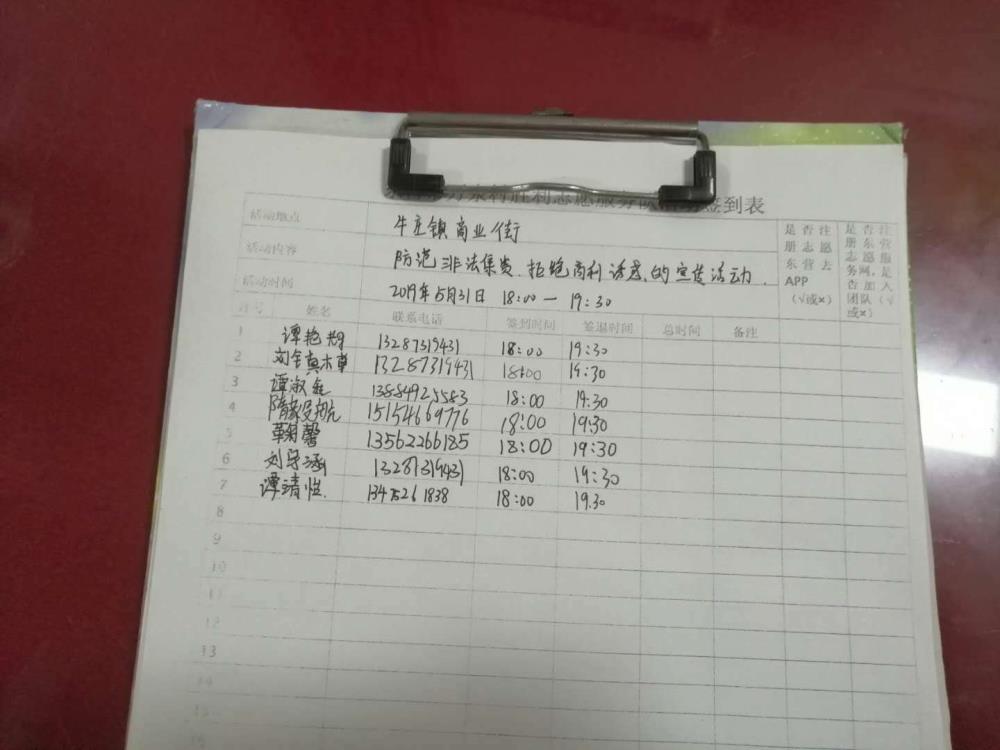 志愿服务 签到表
活动地点 牛庄镇商业街
活动内容 防范非法集资.拒绝高利诱惑的宣传活动.
活动时间 2019年5月31日 18:00一19:30
是否注册志愿东营去APP（√或×）
是否注册东营志愿服务网，是否加入团队（√或×）
序号 姓名 联系电话 签到时间 签退时间 总时间 备注
1 谭艳 13287319431 18:00 19:30
2 刘 13287319431 18:00 19:30
3 谭淑 13884925583 18:00 19:30
4 隋 15154669776 18:00 19:30
5 馨 13562266185 18:00 19:30
6 刘 涵 13287319431 18:00 19:30
7 谭清 13475261838 18:00 19.30
8
9
10
11
12
13
14
15